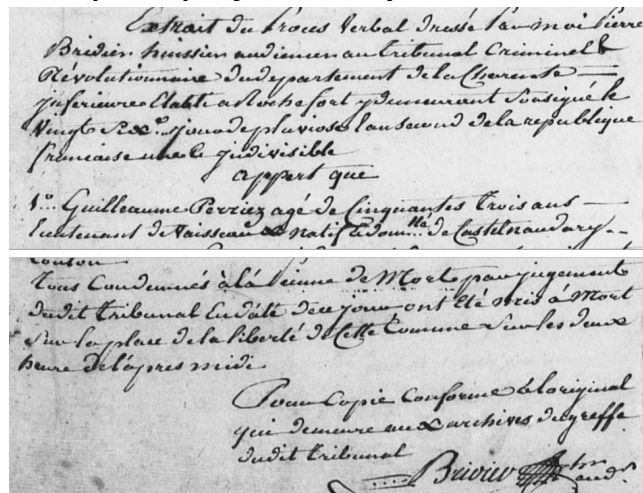 Extrait du Procès Verbal dressé par moi Pierre
Bridier huissier audiencier au tribunal Criminel &
Révolutionnaire du département de la Charente
inférieure Etabli a Rochefort y demeurant Soussigné le
Vingt Six.e jour de pluviose l'an second de la republique
francaise une et indivisible
appert que
1.o Guilleaume Perriez agé de Cinquantes trois ans
lieutenant de Vaisseau natif de Castelnaudary
tous Condamnés à la peinne de Mort par jugement
dudit tribunal En daté de ce jour ont été mis à Mort
Sur la place de la liberté de Cette Commune Sur les deux
heure de l'apres midi
Pour Copie Conforme à l'original
qui demeure aux archives du greffe
dudit tribunal
Bridier